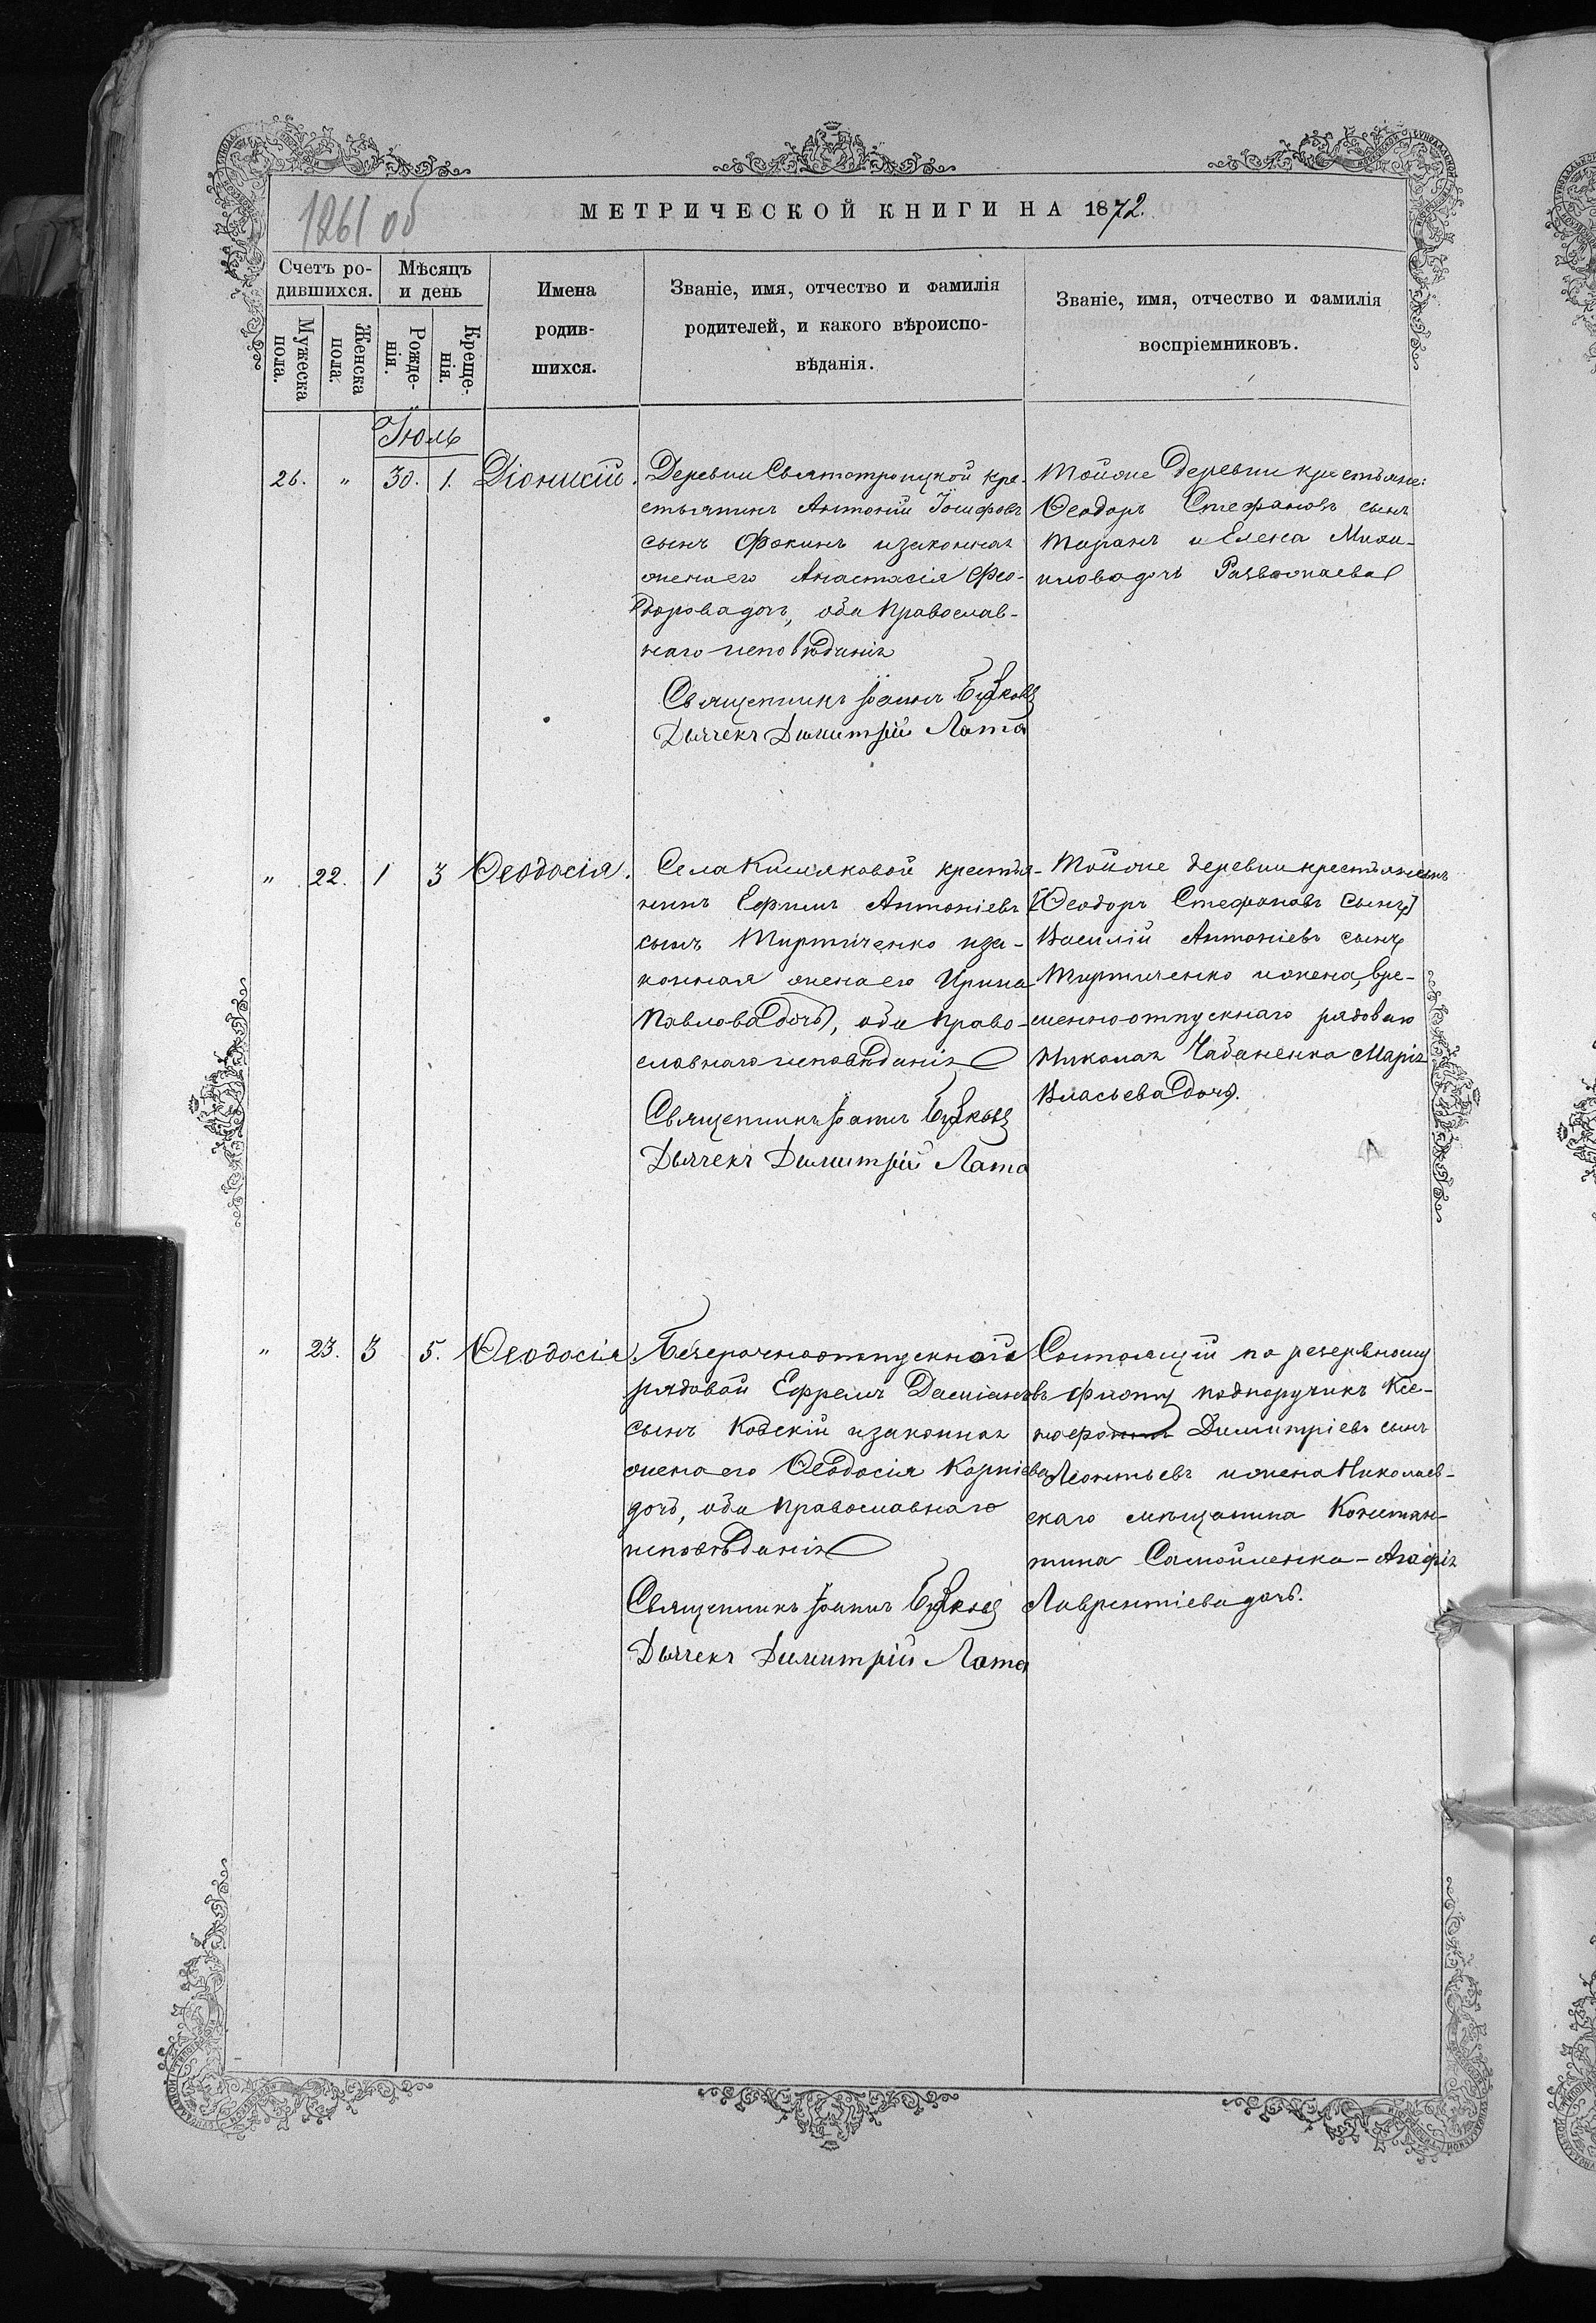 1261 об
МЕТРИЧЕСКОЙ КНИГИ НА 1872.
Счетъ ро-
дившихся.
Мужеска
пола.
Женска
пола.
Мѣсяцъ
и день
Рожде-
нія.
Креще-
нія.
Имена
родив-
шихся.
Званіе, имя, отчество и фамилія
родителей, и какого вѣроиспо-
вѣданія.
Званіе, имя, отчество и фамилія
воспріемниковъ.
Іюль
26. " 30. 1. Діонисій.
Деревни Святотроицкой кре-
стьянинъ Антоній Іосифовъ
сынъ Фокинъ и законная
жена его Анастасія Фео-
дорова дочь, оба Православ-
наго исповѣданія
Священникъ Іоаннъ
Дьячекъ Димитрій Лата
Той же деревни крестьяне:
Ѳеодоръ Стефановъ сынъ
Таранъ и Елена Миха-
илова дочь
" 22. 1 3 Ѳеодосія.
Села Кисляковой крестья-
нинъ Ефимъ Антоніевъ
сынъ Тиртиченко и за-
конная жена его Ирина
Павлова дочь, оба Право-
славнаго исповѣданія
Священникъ Іоаннъ
Дьячекъ Димитрій Лата
Той же деревни крестьянинъ
[Ѳеодоръ Стефановъ сынъ]
Василій Антоніевъ сынъ
Тиртиченко и жена, вре-
менноотпускнаго рядоваго
Николая Чабаненка Марія
Власьева дочь.
" 23. 3 5. Ѳеодосія.
Безсрочноотпускнаго
рядовой Ефремъ Даміановъ
сынъ Кодскій и законная
жена его Ѳеодосія Корніева
дочь, оба Православнаго
исповѣданія
Священникъ Іоаннъ
Дьячекъ Димитрій Лата
Состоящій по резервному
флоту подпоручикъ Ксе-
нофонтъ Димитріевъ сынъ
Леонтьевъ и жена Николаев-
скаго мѣщанина Констан-
тина Самойленка - Агафія
Лаврентіева дочь.